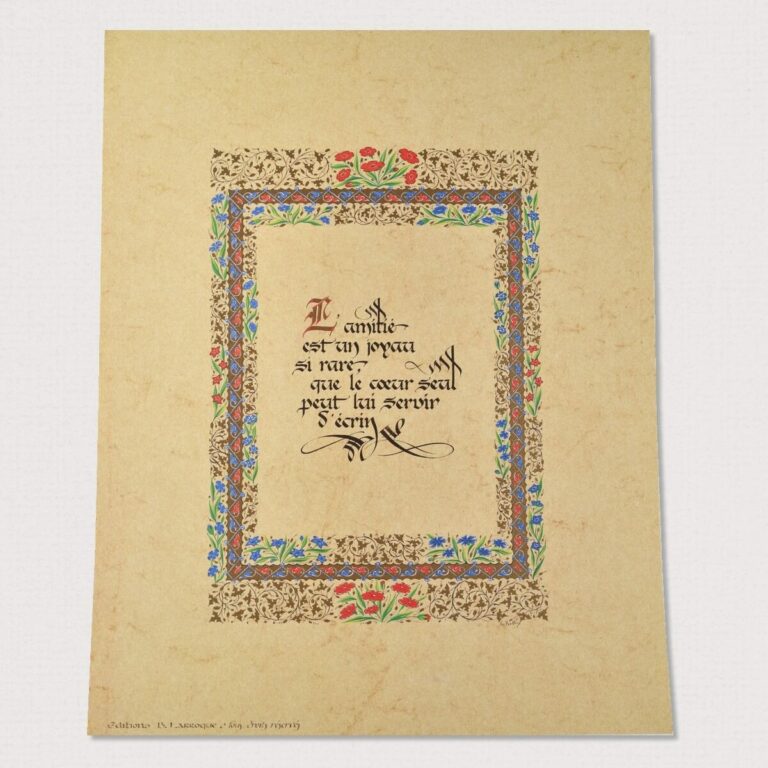 L'amitié
est un joyau
si rare,
que le cœur seul
peut lui servir
d'écrin
Editions B. Larroque, tous droits réservés